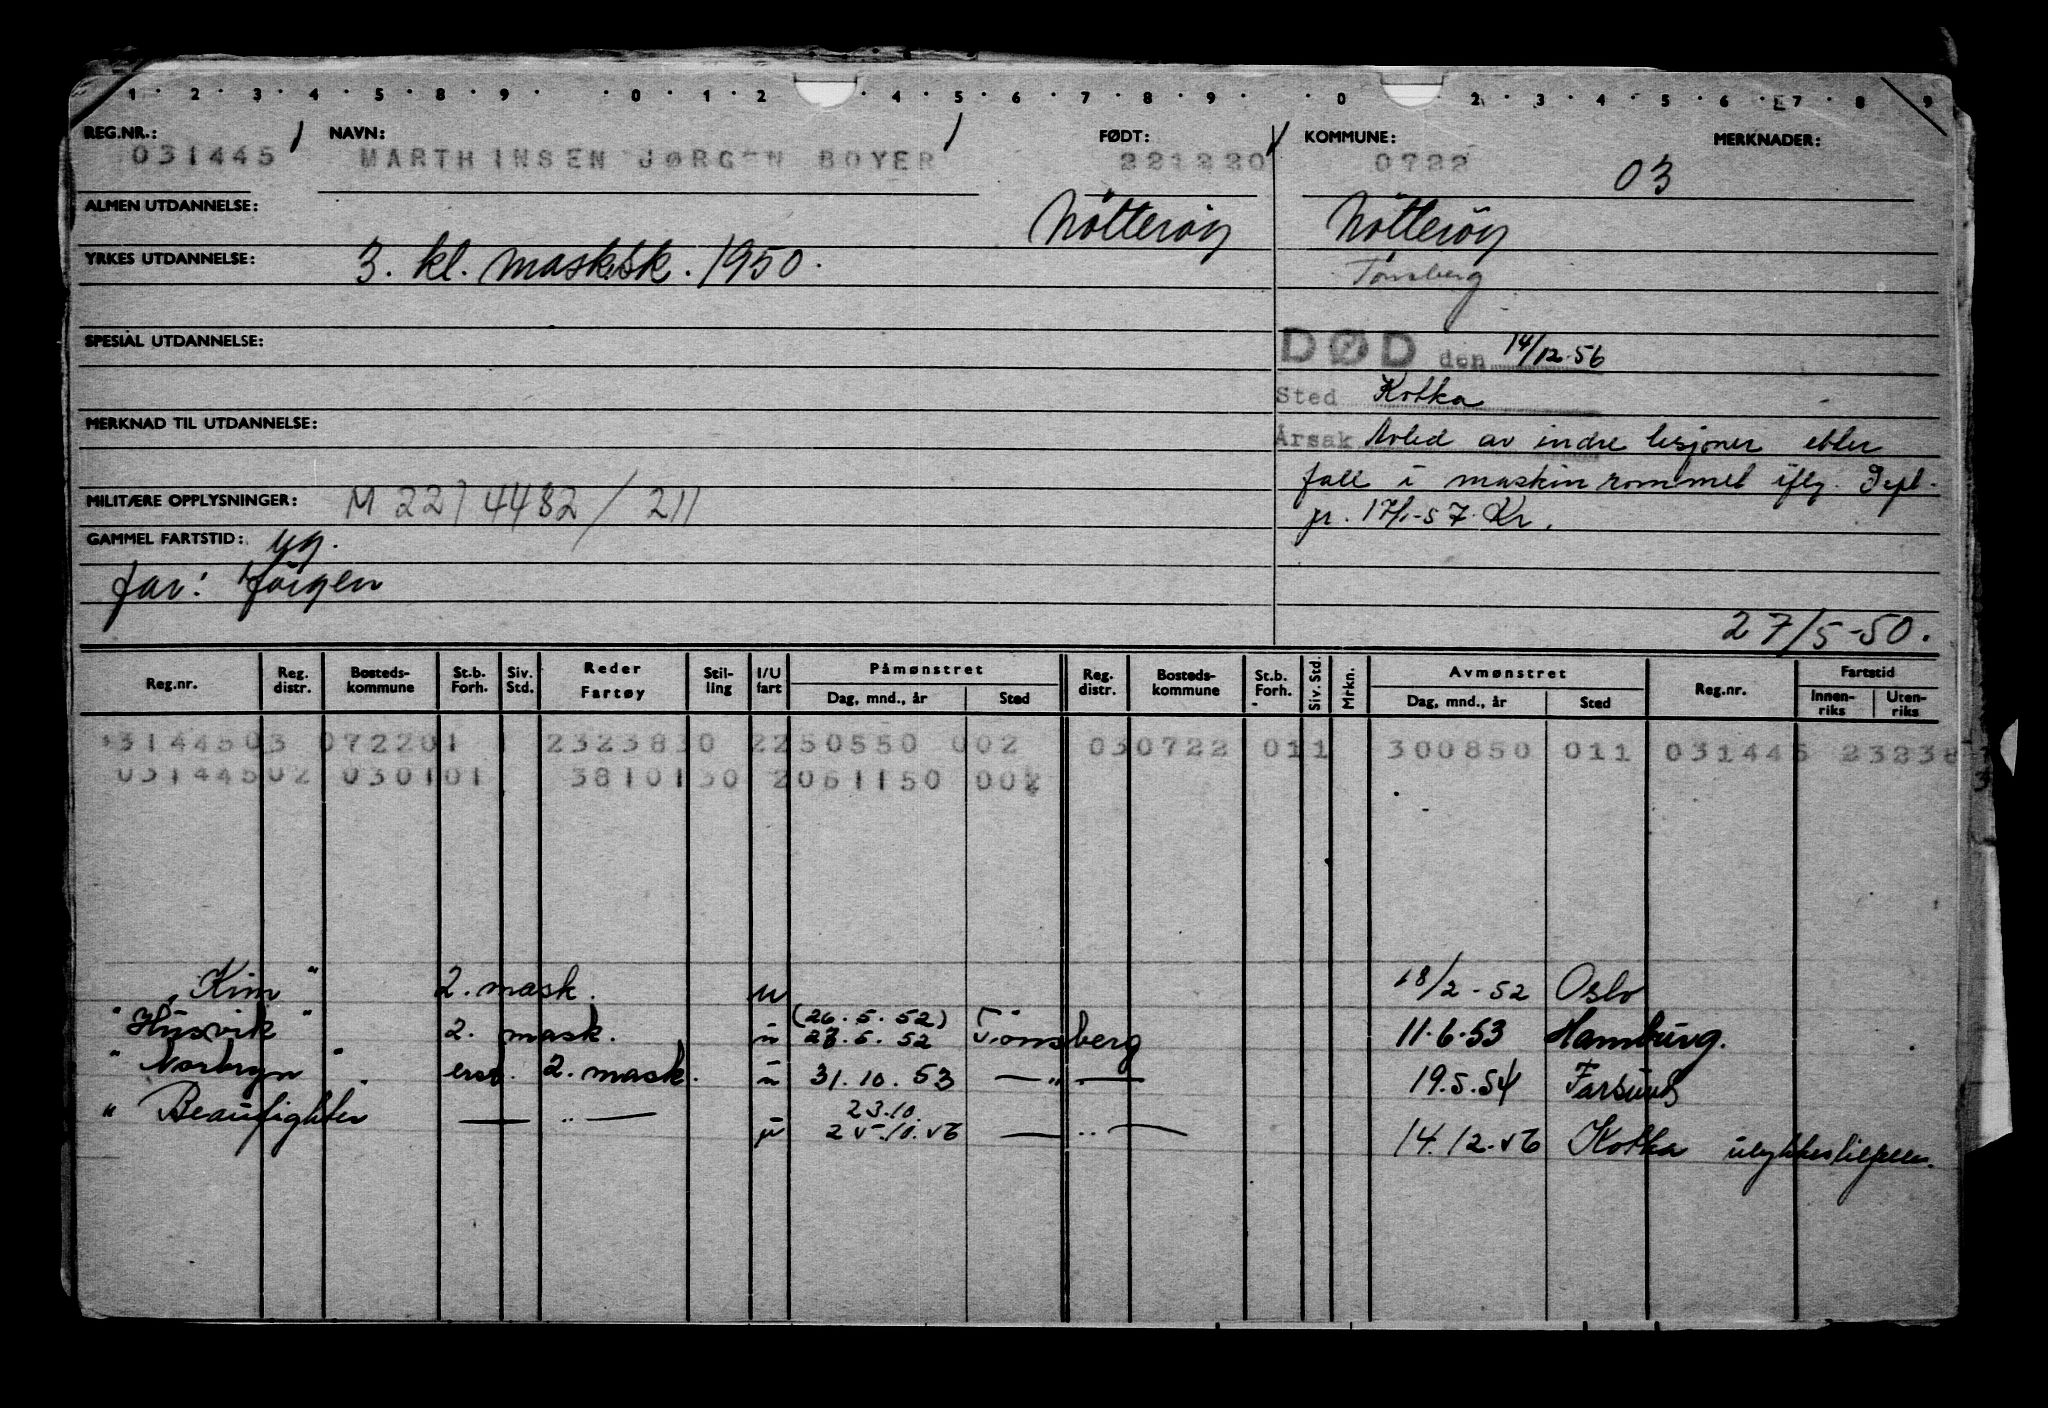 1 2 3 4 5 8 9 0 1 2 4 5 6 7 8 9 0 2 3 4 5 6 7 8 9
REG.NR.: NAVN: FØDT: KOMMUNE: MERKNADER:
031445 MARTHINSEN JØRGEN BOYER 221220 0722 03
ALMEN UTDANNELSE: Nötteröy Nötteröy
YRKES UTDANNELSE: 3. kl. mask.sk. 1950. Tønsberg
SPESIAL UTDANNELSE:
DØD den 14/12.56
Sted Kotka
MERKNAD TIL UTDANNELSE:
Årsak Avled av indre lesjoner etter
fall i maskinrommet iflg.
MILITÆRE OPPLYSNINGER: M 2214482/211
17/1-57. Kr.
GAMMEL FARTSTID: ug.
far: Jörgen
27/5-50.
Reg.nr. Reg. distr. Bosteds-kommune St.b. Forh. Siv. Std. Reder Fartøy Stil-ling I/U fart Påmønstret Dag, mnd., år Sted Reg. distr. Bosteds-kommune St.b. Forh. Siv. Std. Mrkn. Avmønstret Dag, mnd., år Sted Reg.nr. Fartstid Innen-riks Uten-riks
3144503 072201 1 2323830 2250550 002 030722 011 300850 011 031445 23238
03144502 030101 3810130 2061150 002
"Kim" 2. mask. u 18/2-52 Oslo
(26.5.52)
"Husvik" 2. mask. u 27.5.52 Tönsberg 11.6.53 Hamburg.
"Norbryn" erst. 2. mask. u 31.10.53 —"— 19.5.54 Farsund
23.10.
" Beaufighter —"— u 25.10.56 —"— 14.12.56 Kotka ulykkestilfelle.